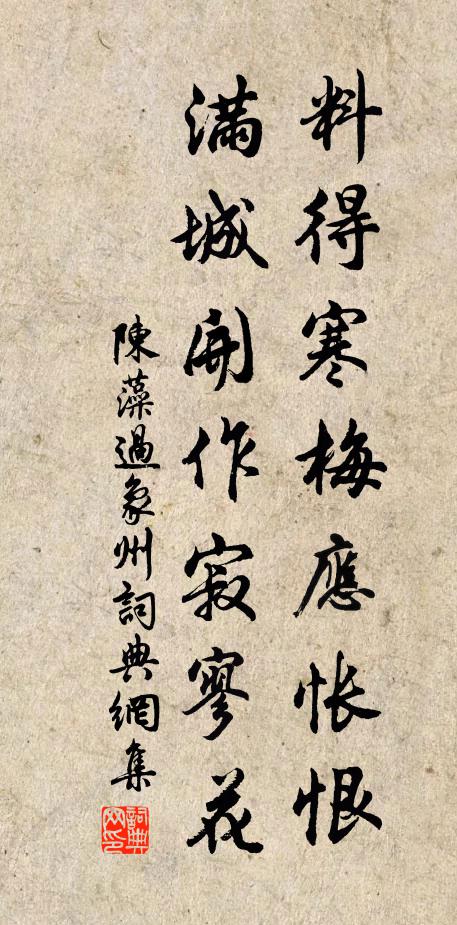 料得寒梅應怅恨
滿城開作寂寥花
陳藻過象州詞典網集
詞典网印